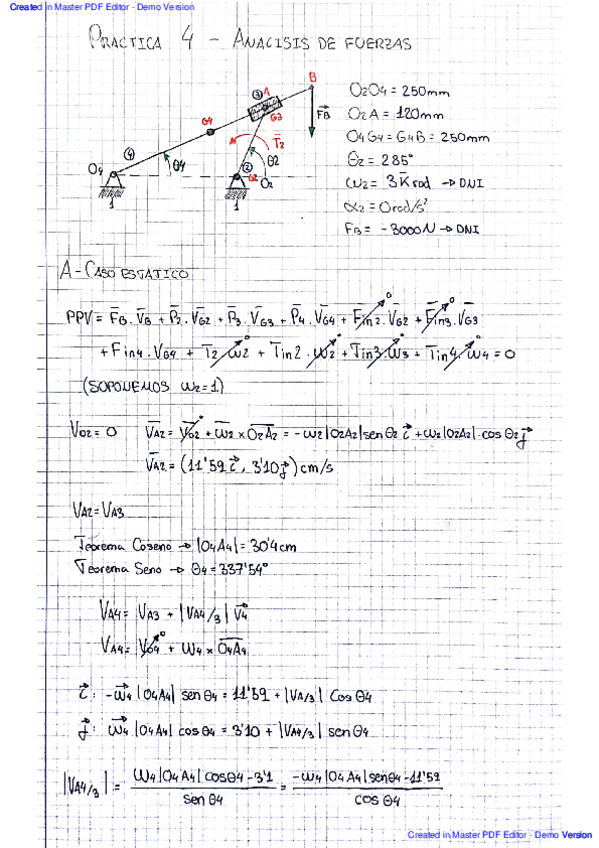 Created in Master PDF Editor - Demo Version
PRACTICA 4 - ANALISIS DE FUERZAS
B
③ A
G3
G4
F̄B
T̄2
④
θ4
②
θ2
O4
G2
O2
1
1
O2O4 = 250mm
O2A = 120mm
O4G4 = G4B = 250mm
θ2 = 285°
ω2 = 3 K̄ rad → DNI
α2 = 0 rad/s²
FB = -3000N → DNI
A - CASO ESTATICO
PPV = F̄B · V̄B + P̄2 · V̄G2 + P̄3 · V̄G3 + P̄4 · V̄G4 + F̄in2 · V̄G2 + F̄in3 · V̄G3
+ Fin4 · VG4 + T̄2 · ω̄2 + T̄in2 · ω̄2 + T̄in3 · ω̄3 + T̄in4 · ω̄4 = 0
(SUPONEMOS ω2=1)
VO2 = 0 V̄A2 = V̄O2 + ω̄2 × O2A2 = -ω2 |O2A2| sen θ2 i⃗ + ω2 |O2A2| · cos θ2 j⃗
V̄A2 = (11'59 i⃗, 3'10 j⃗) cm/s
VA2 = VA3
Teorema Coseno → |O4A4| = 30'4 cm
Teorema Seno → θ4 = 337'54°
V̄A4 = V̄A3 + |VA4/3| V̄4
V̄A4 = V̄O4 + ω4 × O4A4
i⃗: -ω⃗4 |O4A4| sen θ4 = 11'59 + |VA4/3| Cos θ4
j⃗: ω⃗4 |O4A4| cos θ4 = 3'10 + |VA4/3| sen θ4
|VA4/3| = ω4 |O4A4| cos θ4 - 3'1 / sen θ4 = -ω4 |O4A4| sen θ4 - 11'59 / cos θ4
Created in Master PDF Editor - Demo Version